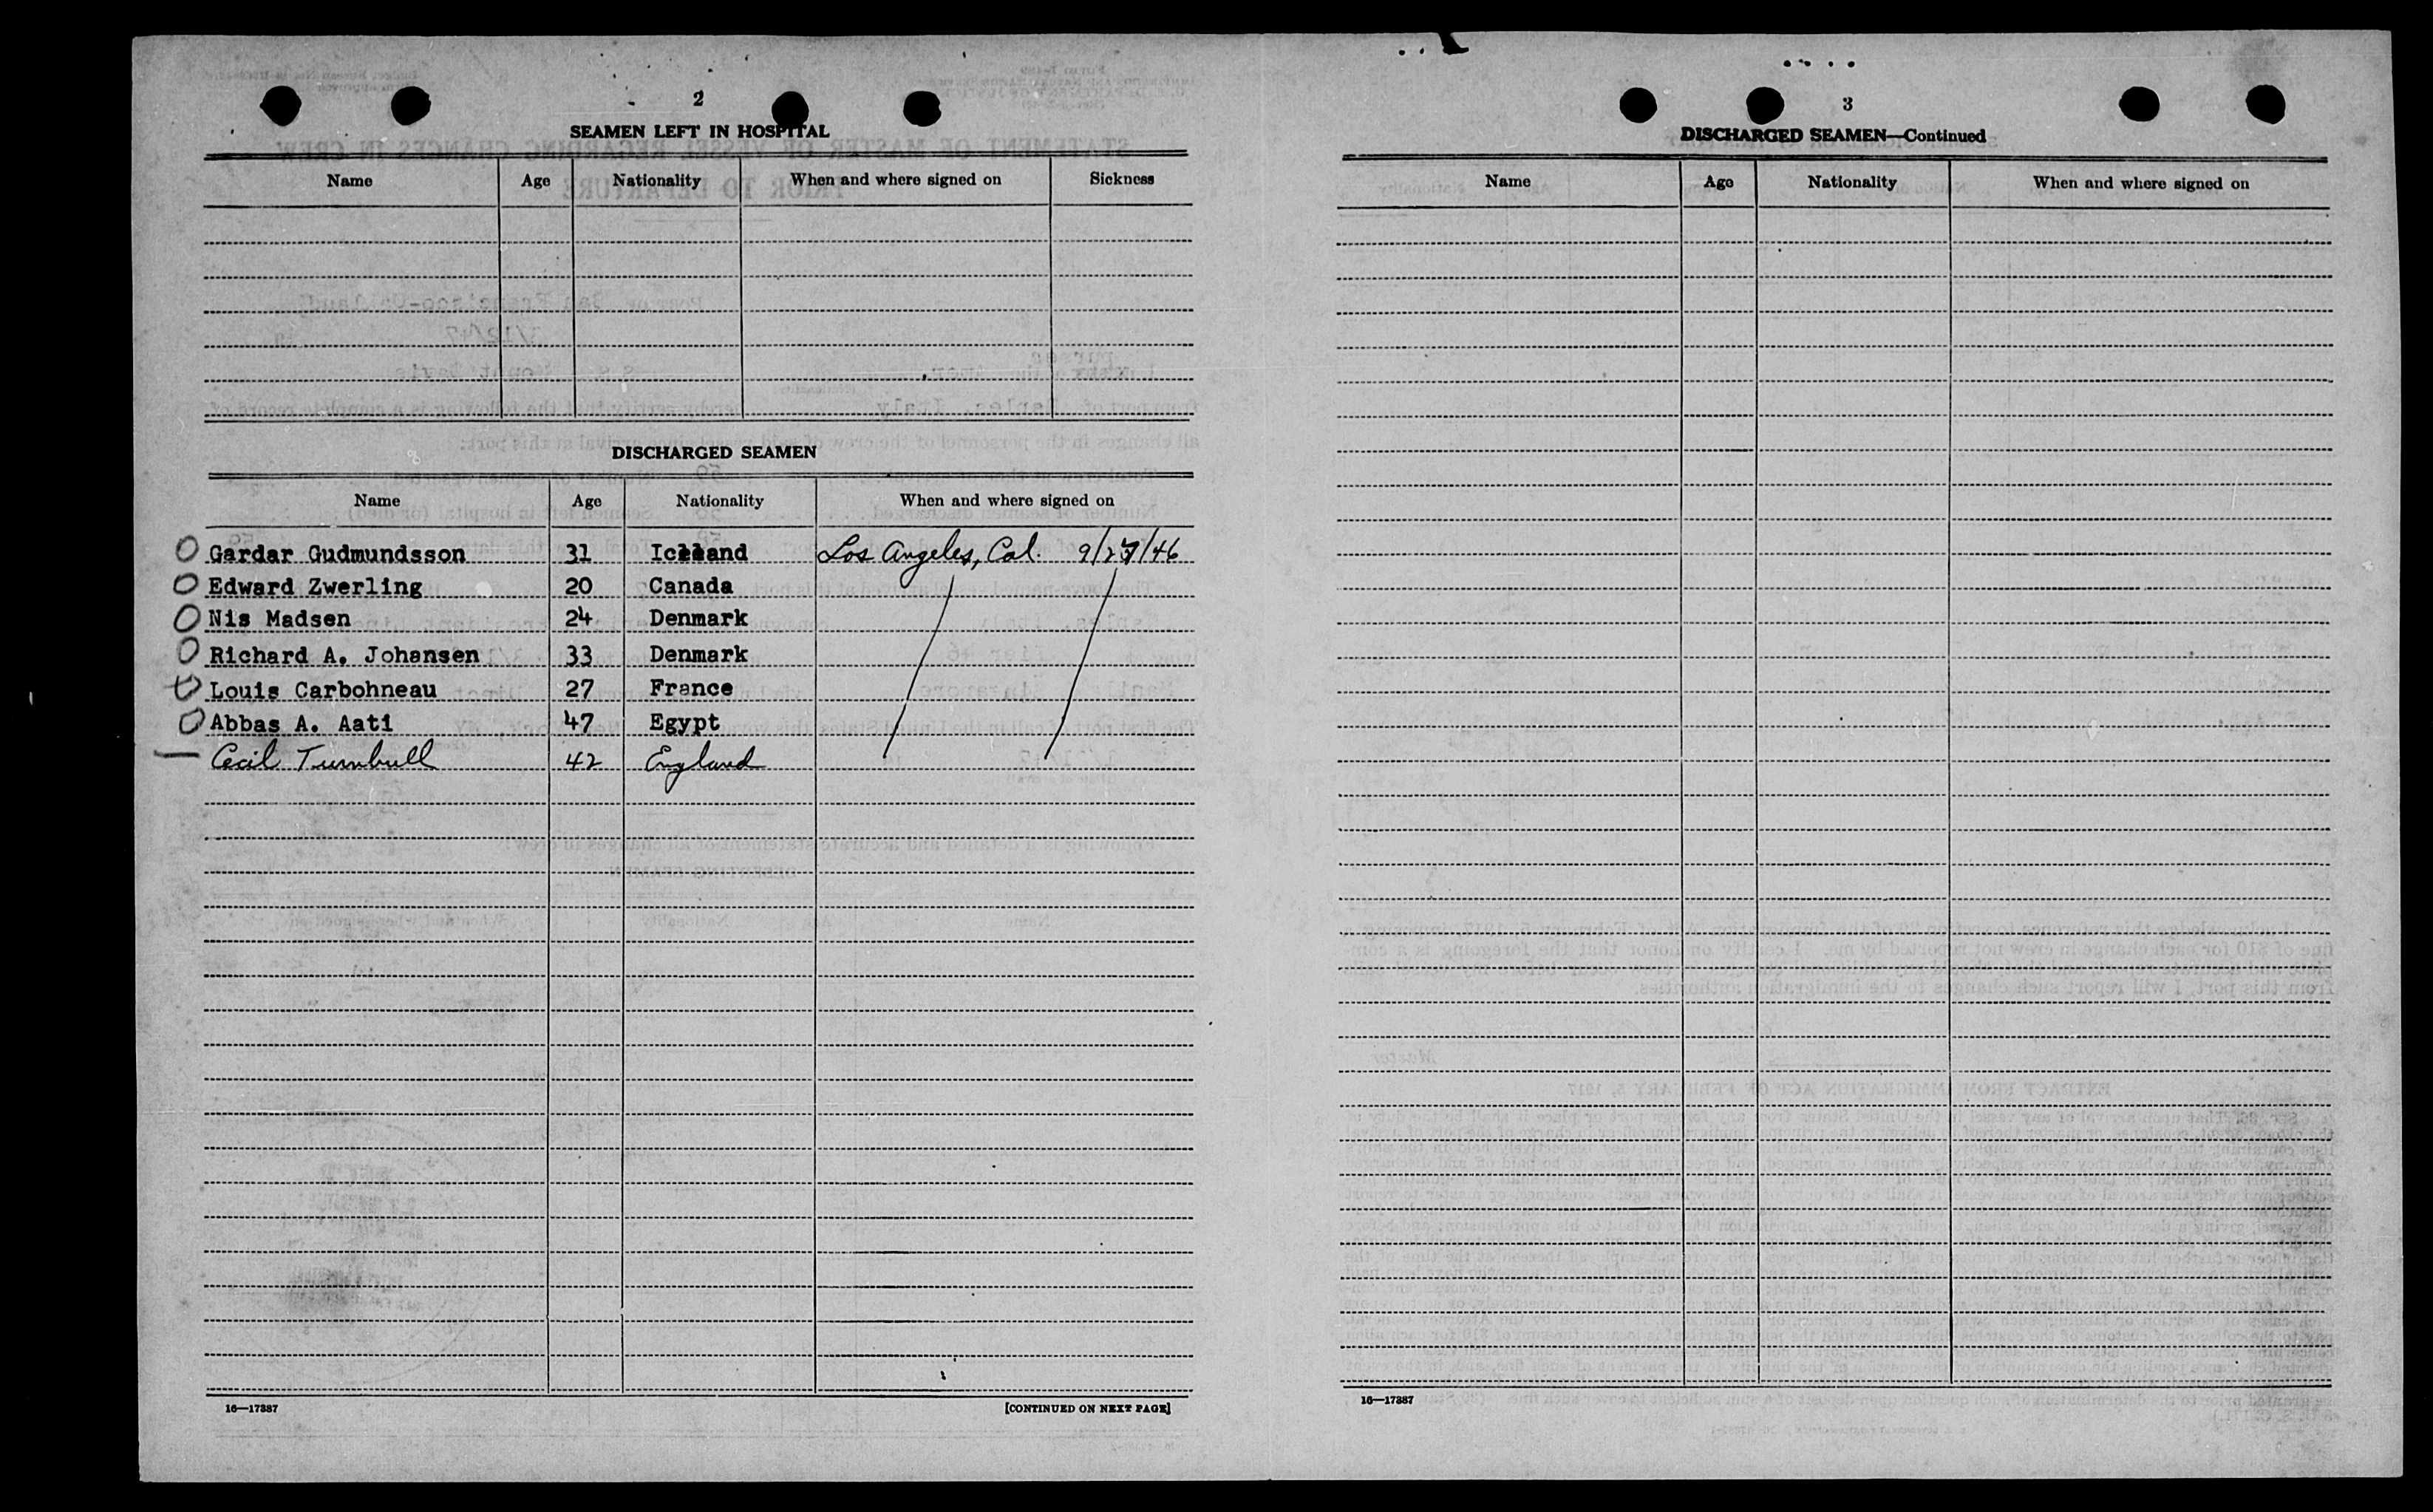 2
SEAMEN LEFT IN HOSPITAL
Name Age Nationality When and where signed on Sickness
DISCHARGED SEAMEN
Name Age Nationality When and where signed on
Gardar Gudmundsson 31 Iceland Los Angeles, Cal. 9/27/46
Edward Zwerling 20 Canada
Nis Madsen 24 Denmark
Richard A. Johansen 33 Denmark
Louis Carbohneau 27 France
Abbas A. Aati 47 Egypt
Cecil Turnbull 42 England
16—17387 [CONTINUED ON NEXT PAGE]
3
DISCHARGED SEAMEN—Continued
Name Age Nationality When and where signed on
16—17387